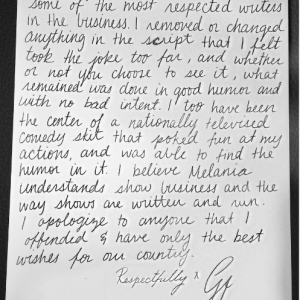 some of the most respected writers
in the business. I removed or changed
anything in the script that I felt
took the joke too far, and whether
or not you choose to see it, what
remained was done in good humor and
with no bad intent. I too have been
the center of a nationally televised
comedy skit that poked fun at my
actions, and was able to find the
humor in it. I believe Melania
understands show business and the
way shows are written and run.
I apologize to anyone that I
offended & have only the best
wishes for our country.
Respectfully x